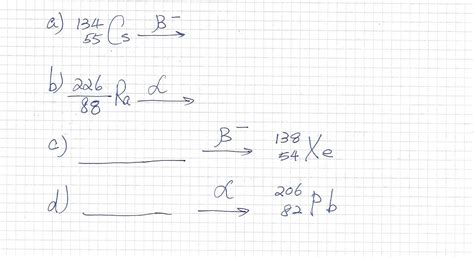 a) ¹³⁴₅₅Cs β⁻ →
b) ²²⁶₈₈Ra α →
c) ______ β⁻ → ¹³⁸₅₄Xe
d) ______ α → ²⁰⁶₈₂Pb